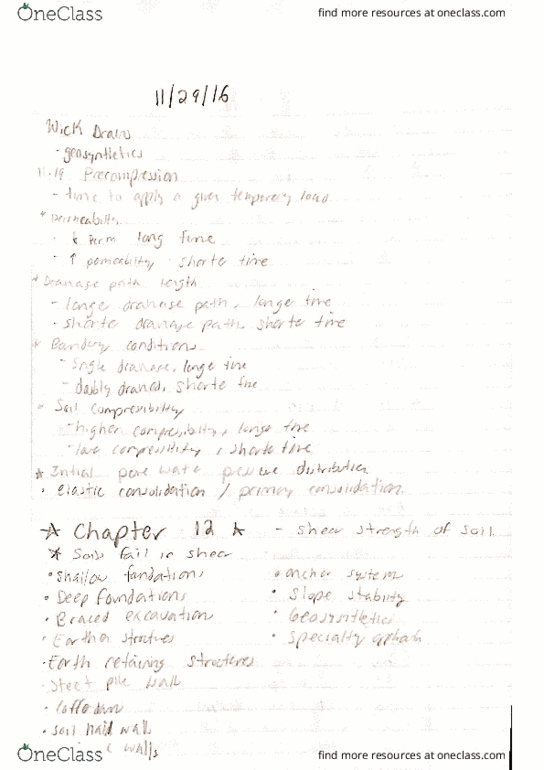 OneClass
find more resources at oneclass.com
11/29/16
Wick Drains
- geosynthetics
11.19 Precompression
- time to apply a given temporary load
* Permeability
- ↓ Perm long time
- ↑ permeability shorte time
* Dranage path length
- longe dranage path, longe time
- shorte dranage path, shorte time
* Bandery conditions
- Single dranage, longe time
- doubly draned, shorte time
• Soil compressibility
- higher compressibility, longe time
- low compressibility, shorte time
* Initial pore water pressure distribution
• elastic consolidation / primary consolidation
* Chapter 12 * - shear strength of soil
* Soils fail in shear
• Shallow foundations
• anchor system
• Deep foundations
• Slope stability
• Braced excavation
• Geosynthetics
• Earthen structures
• Specialty
• Earth retaining structures
• Sheet pile wall
• Cofferdam
• soil nail wall
walls
OneClass
find more resources at oneclass.com